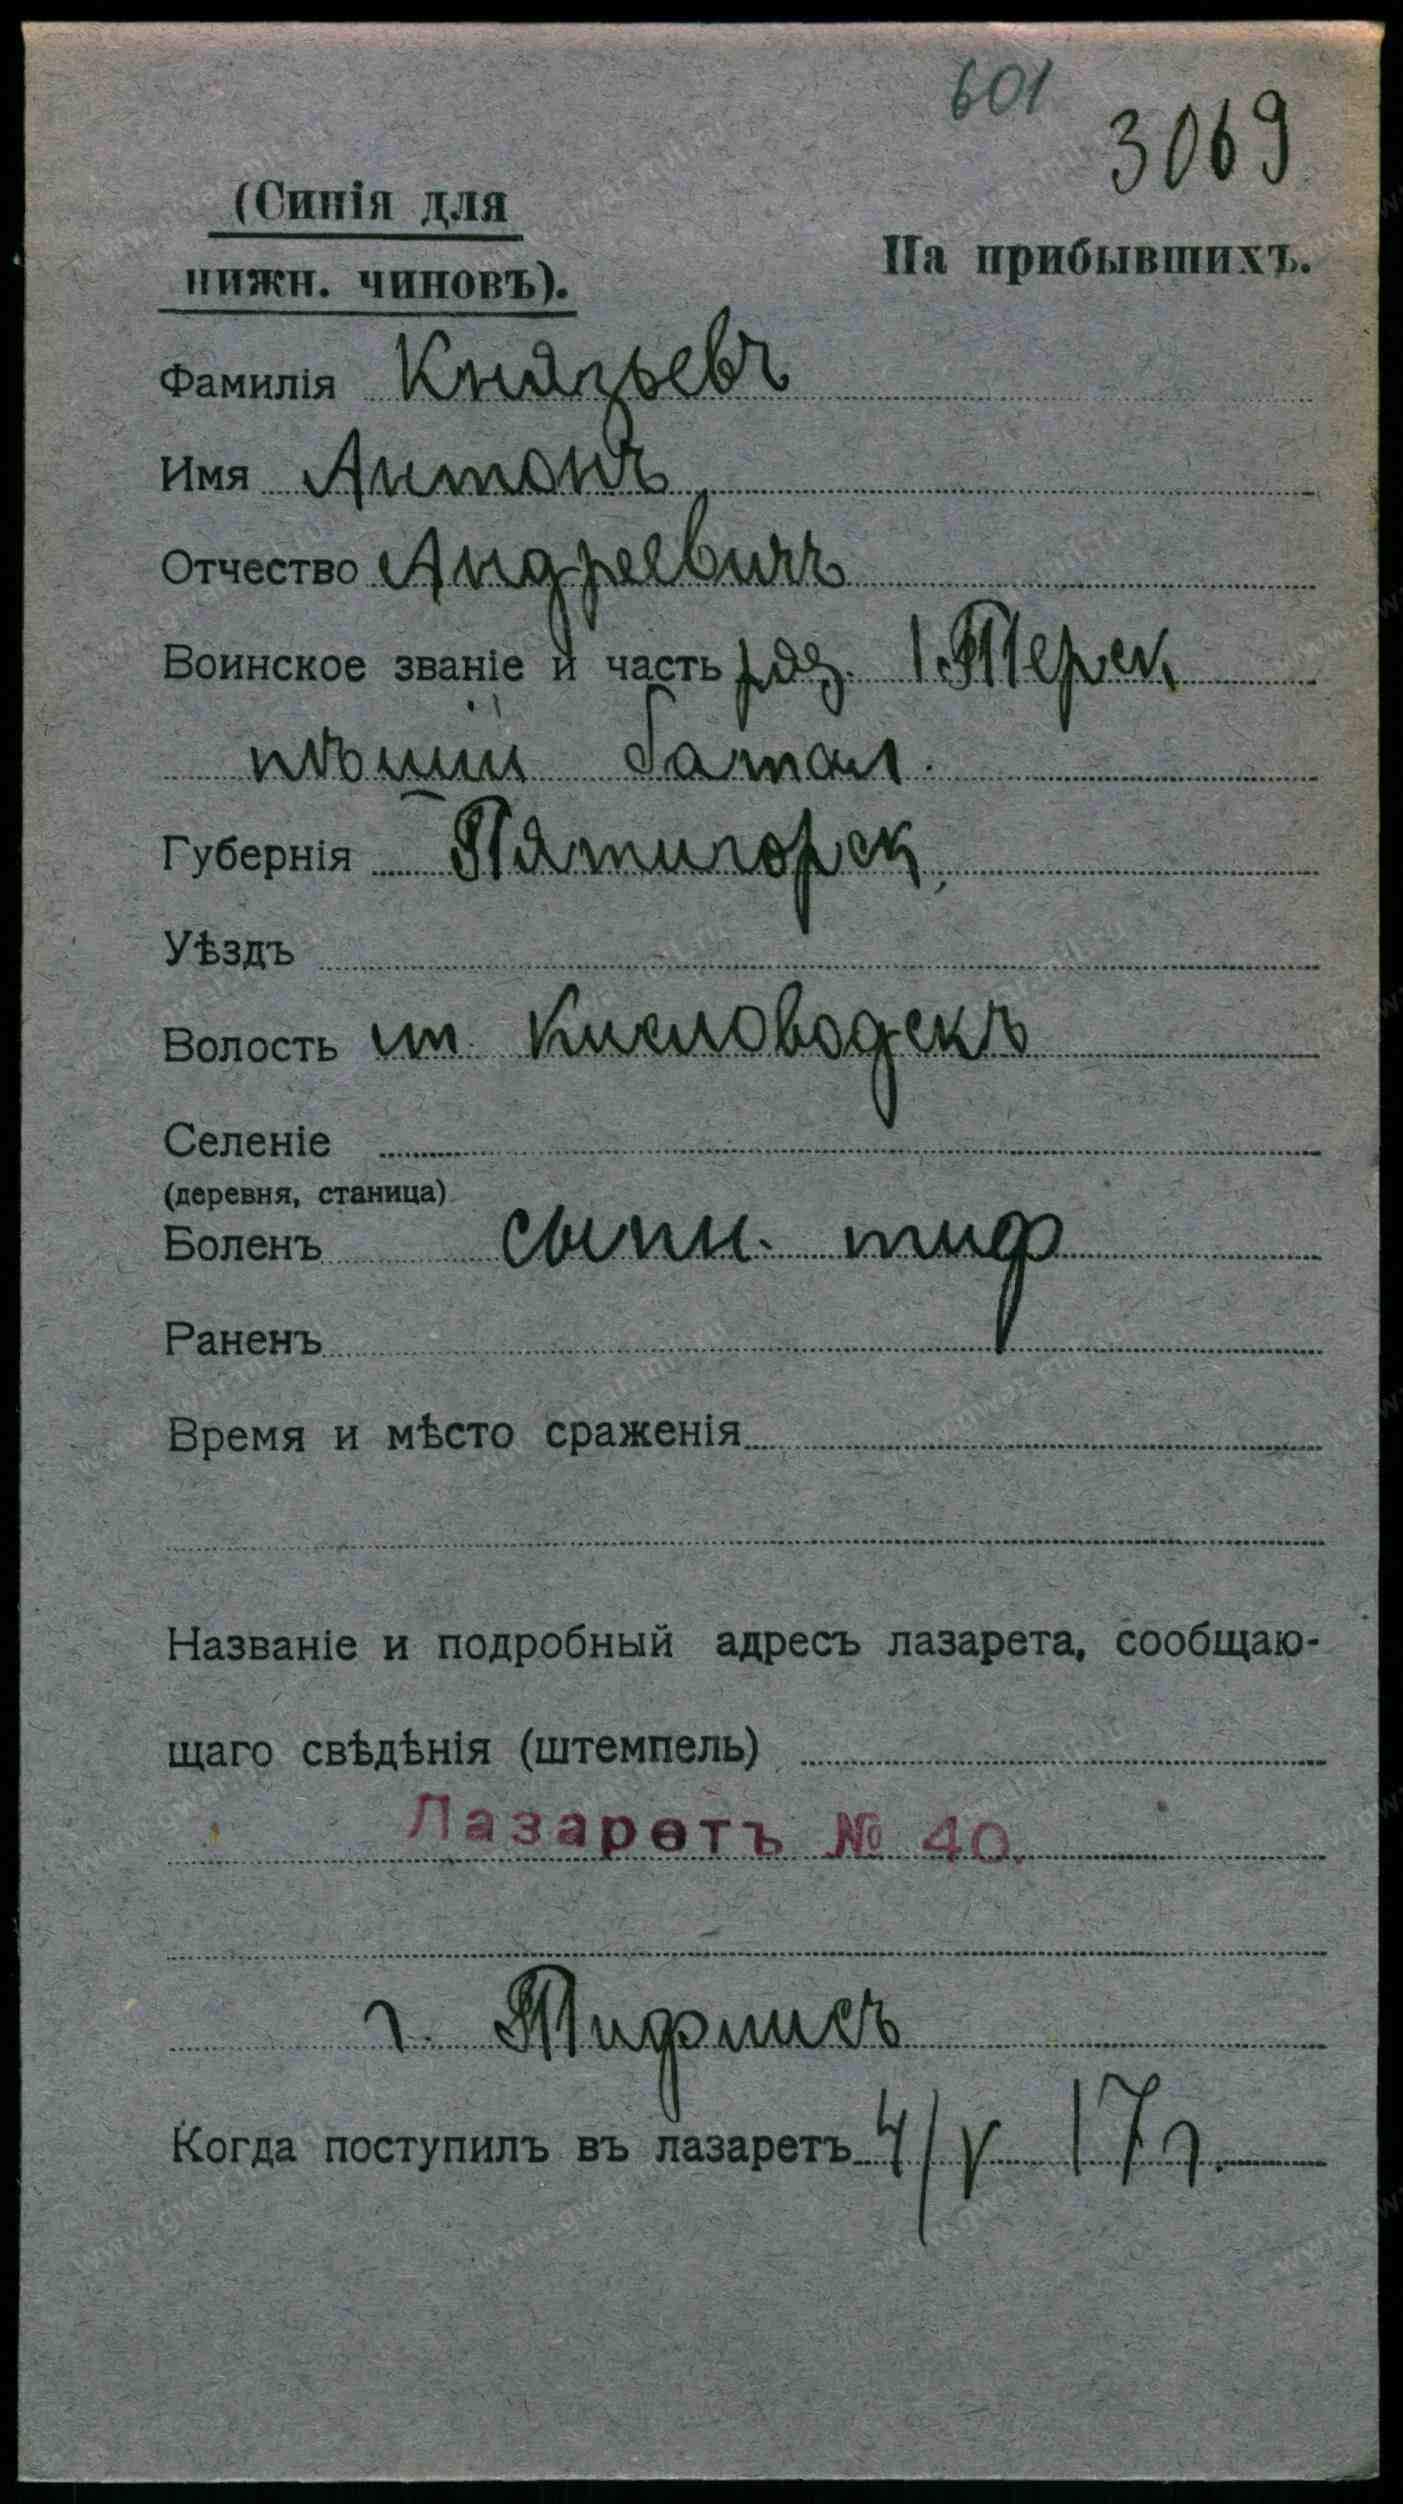 601
3069
(Синія для
нижн. чиновъ).
На прибывшихъ.
Фамилія Князьевъ
Имя Антонъ
Отчество Андреевичъ
Воинское званіе и часть ряд. 1. Терск.
пѣший батал.
Губернія Пятигорск.
Уѣздъ
Волость ст. Кисловодскъ
Селеніе
(деревня, станица)
Боленъ сыпн. тиф
Раненъ
Время и мѣсто сраженія
Названіе и подробный адресъ лазарета, сообщаю-
щаго свѣдѣнія (штемпель)
Лазаретъ № 40.
г. Тифлисъ
Когда поступилъ въ лазаретъ 4/V 17 г.